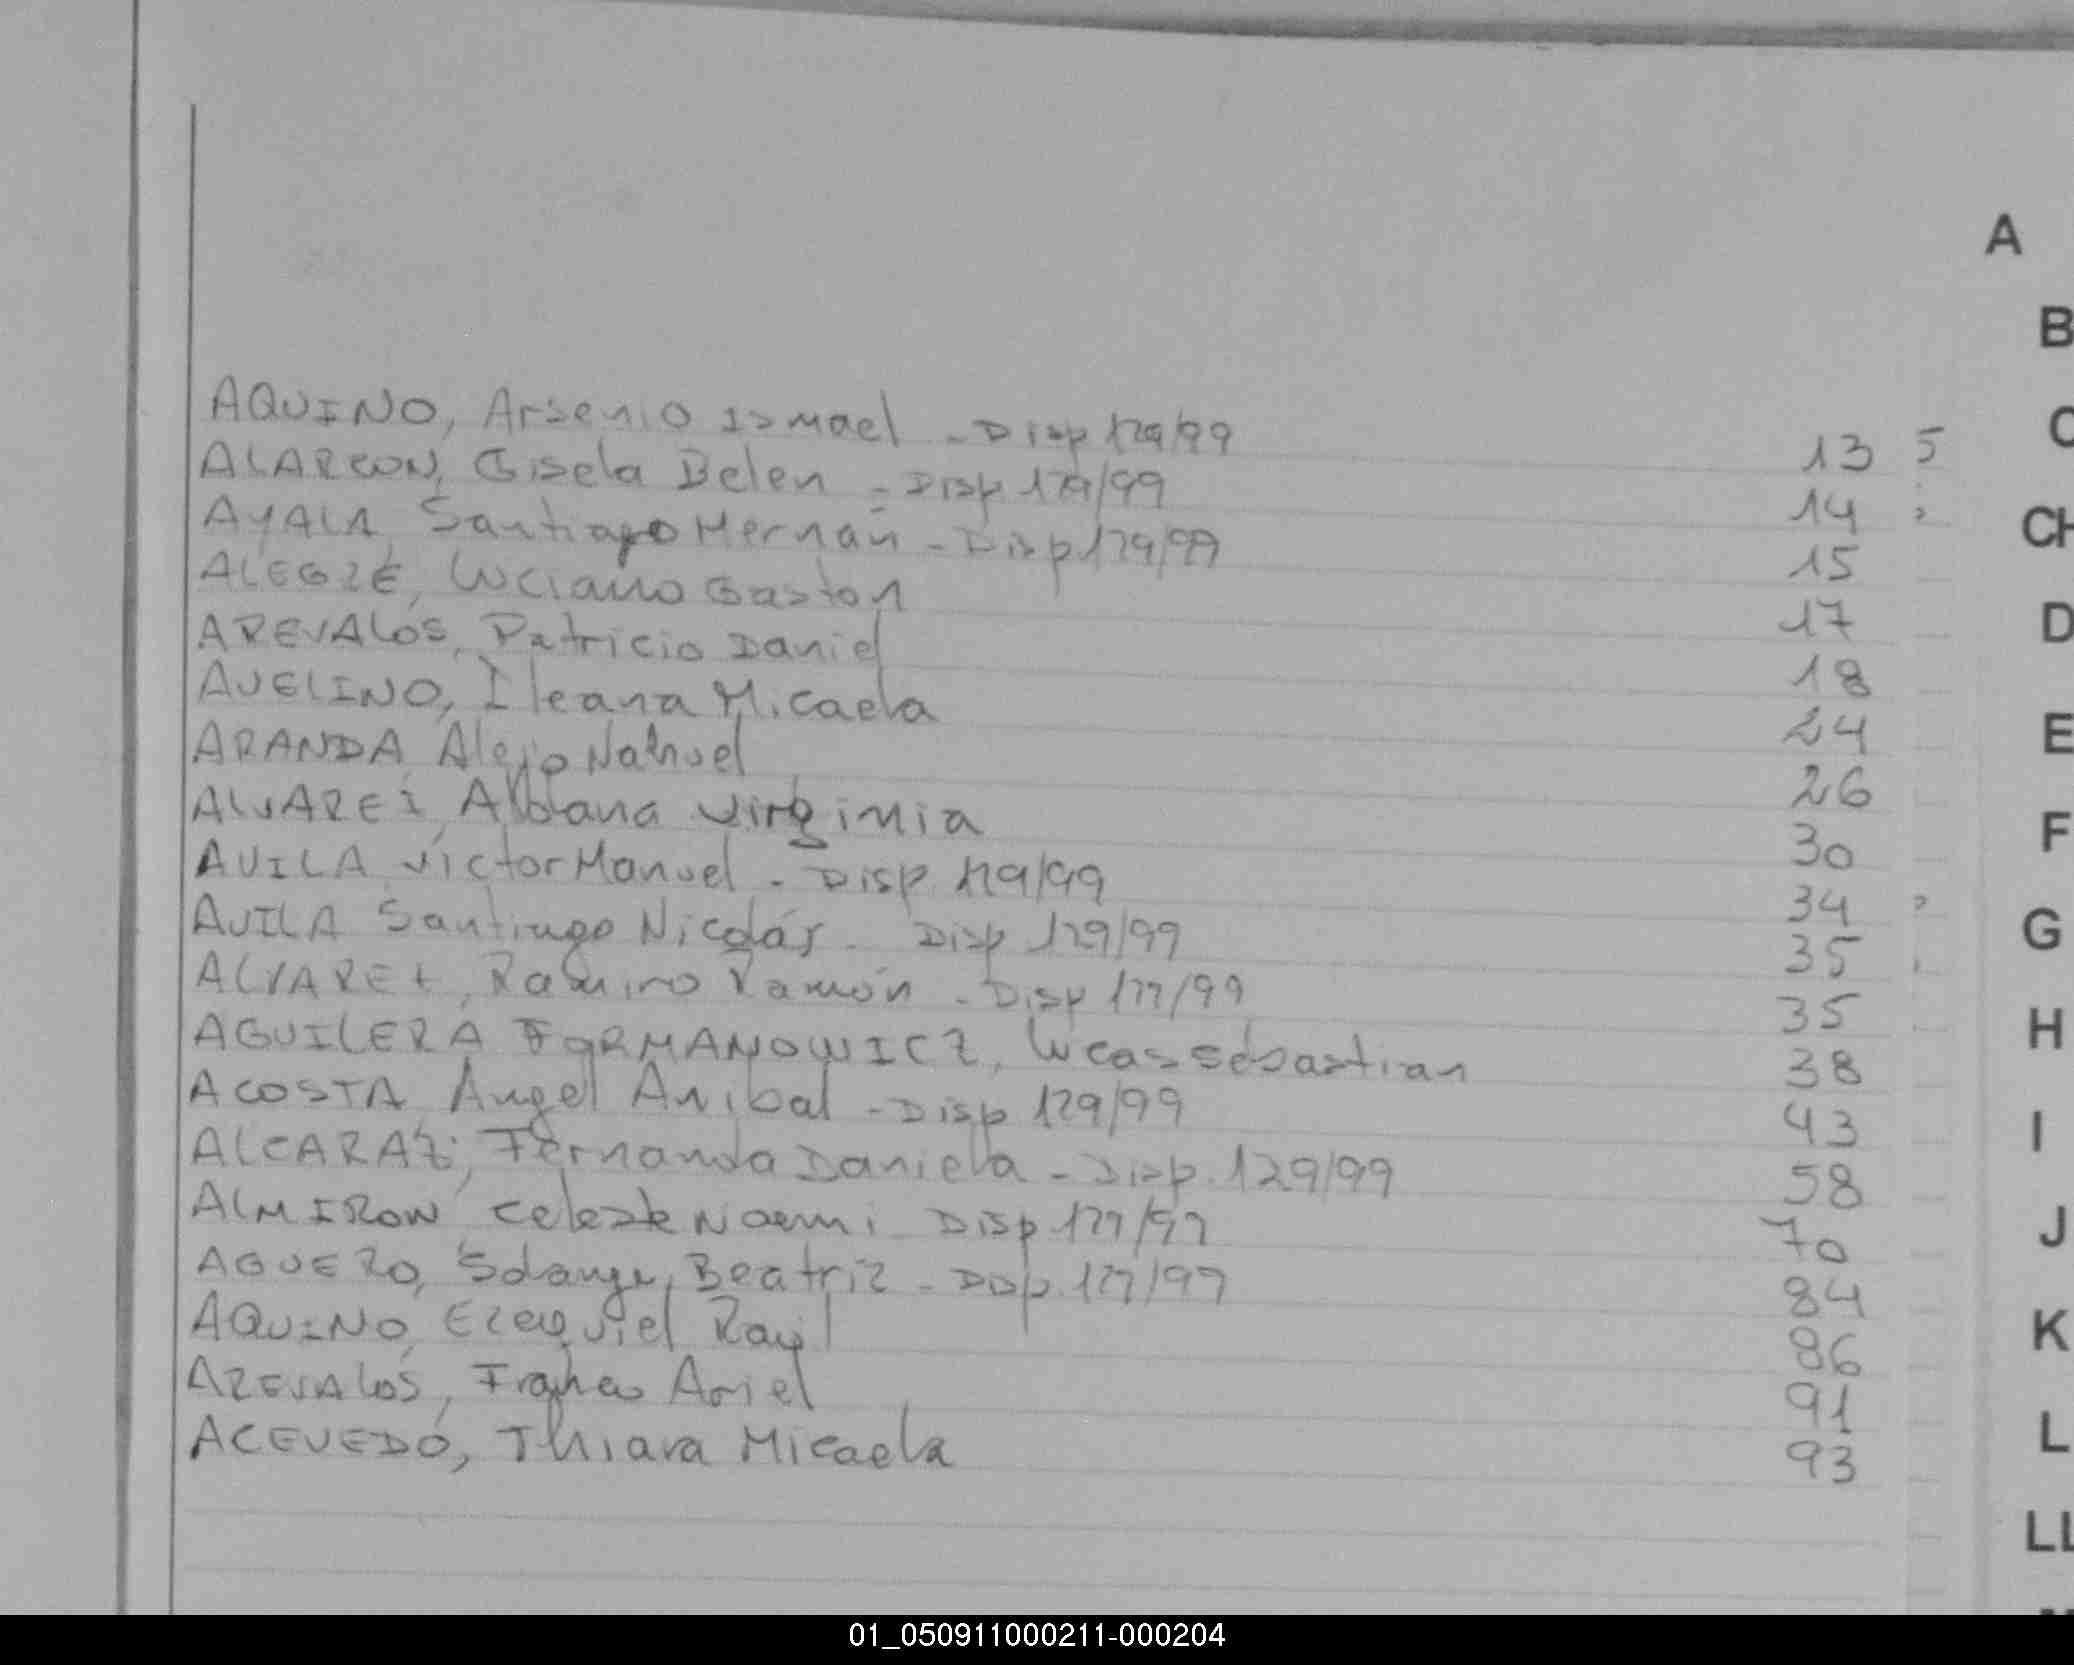 A
B
C
CH
D
E
F
G
H
I
J
K
L
LL
AQUINO, Arsenio Ismael - Disp 129/99 13 5
ALARCON, Gisela Belen - Disp 129/99 14
AYALA Santiago Hernán - Disp 129/99 15
ALEGRE, Luciano Gaston 17
AREVALOS, Patricio Daniel 18
AVELINO, Ileana Micaela 24
ARANDA, Alejo Nahuel 26
ALVAREZ, Albana Virginia 30
AVILA, Victor Manuel - Disp. 129/99 34
AVILA Santiago Nicolás - Disp 129/99 35
ALVAREZ, Ramiro Ramón - Disp 177/99 35
AGUILERA FORMANOWICZ, Lucas Sebastian 38
ACOSTA Angel Anibal - Disp 129/99 43
ALCARAZ, Fernanda Daniela - Disp. 129/99 58
ALMIRON Celeste Noemi Disp 177/97 70
AGUERO, Solange Beatriz - Disp. 177/97 84
AQUINO, Ezequiel Raúl 86
AREVALOS, Franco Ariel 91
ACEVEDO, Thiara Micaela 93
01_050911000211-000204